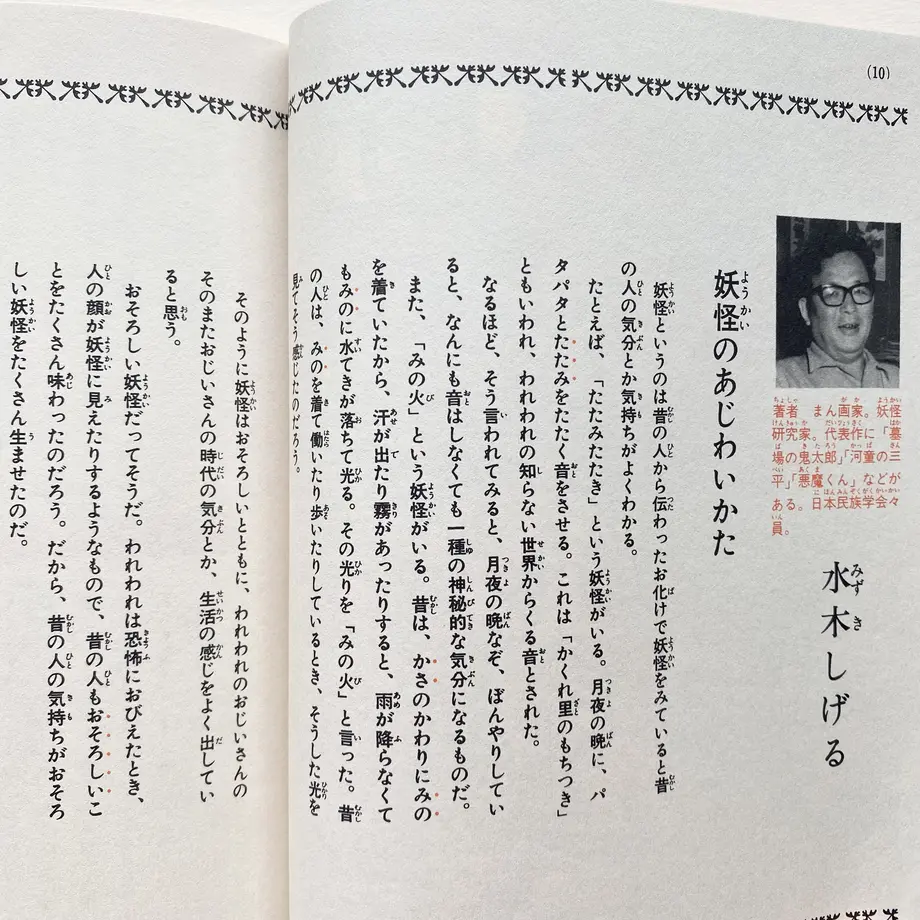 (10)
著者　まん画家。妖怪
研究家。代表作に「墓
場の鬼太郎」「河童の三
平」「悪魔くん」などが
ある。日本民族学会々
員。
妖怪のあじわいかた
水木しげる
妖怪というのは昔の人から伝わったお化けで妖怪をみていると昔
の人の気分とか気持ちがよくわかる。
たとえば、「たたみたたき」という妖怪がいる。月夜の晩に、パ
タパタとたたみをたたく音をさせる。これは「かくれ里のもちつき」
ともいわれ、われわれの知らない世界からくる音とされた。
なるほど、そう言われてみると、月夜の晩なぞ、ぼんやりしてい
ると、なんにも音はしなくても一種の神秘的な気分になるものだ。
また、「みの火」という妖怪がいる。昔は、かさのかわりにみの
を着ていたから、汗が出たり霧があったりすると、雨が降らなくて
もみのに水てきが落ちて光る。その光りを「みの火」と言った。昔
の人は、みのを着て働いたり歩いたりしているとき、そうした光を
見てそう感じたのだろう。
そのように妖怪はおそろしいとともに、われわれのおじいさんの
そのまたおじいさんの時代の気分とか、生活の感じをよく出してい
ると思う。
おそろしい妖怪だってそうだ。われわれは恐怖におびえたとき、
人の顔が妖怪に見えたりするようなもので、昔の人もおそろしいこ
とをたくさん味わったのだろう。だから、昔の人の気持ちがおそろ
しい妖怪をたくさん生ませたのだ。